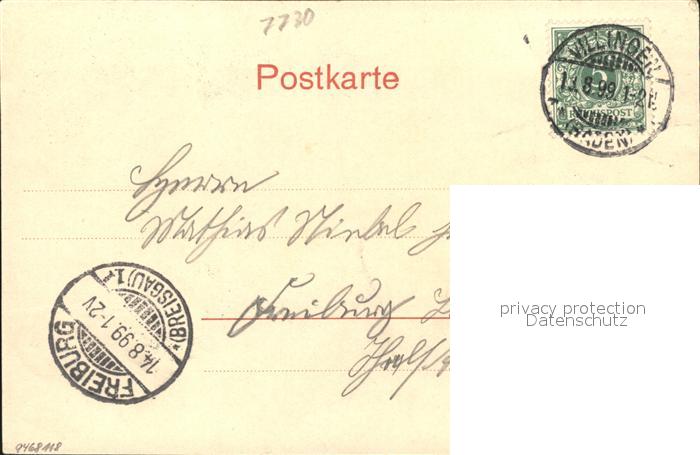 7730
Postkarte
VILLINGEN
13.8.99.1-2N
(BADEN)
5
REICHSPOST
Herrn
Mathias
Freiburg
FREIBURG
14.8.99.1-2V
*(BREISGAU)1.
privacy protection
Datenschutz
9468118